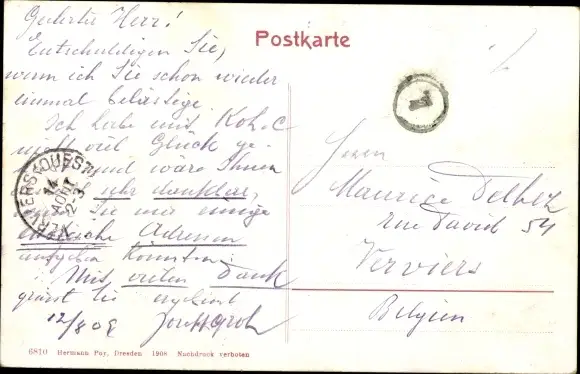 Geehrter Herr!
Entschuldigen Sie,
wenn ich Sie schon wieder
einmal belästige.
Ich habe mit
nicht viel Glück ge-
und wäre Ihnen
sehr dankbar,
Sie mir einige
Adressen
angeben könnten.
Mit vielen Dank
grüsst Sie ergebenst
12/8 09
Postkarte
Herrn
Maurice Delhez
rue David 54
Verviers
Belgien
VERVIERS (OUEST)
14
AOUT
2-3
1
6810 Hermann Poy, Dresden 1908 Nachdruck verboten